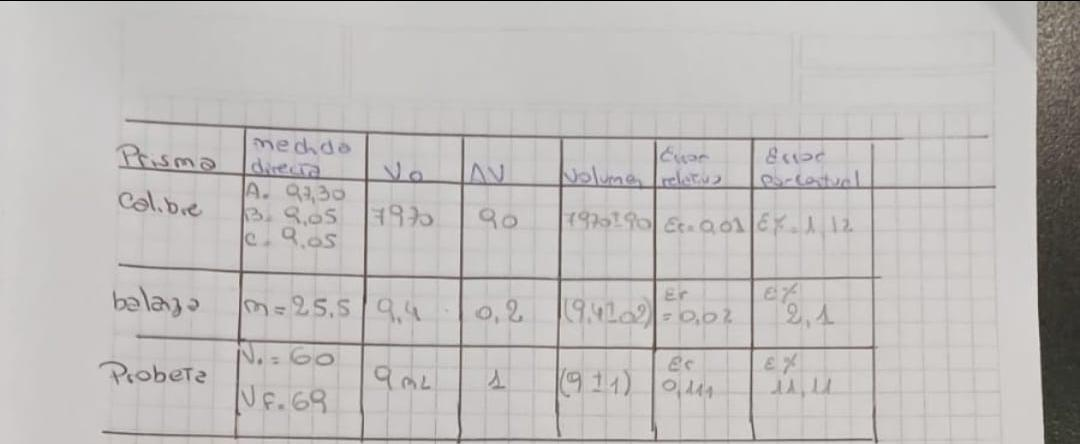 Prisma medida directa Vo ΔV Volumen Error relativo Error porcentual
Calibre A. 97,30 7970 90 7970±90 Er=0,01 E%=1,12
B. 9,05
C. 9,05
balanza m=25,5 9,4 0,2 (9,4±0,2) Er=0,02 E% 2,1
Probeta V.=60 9 mL 1 (9±1) Er 0,111 E% 11,11
VF.69